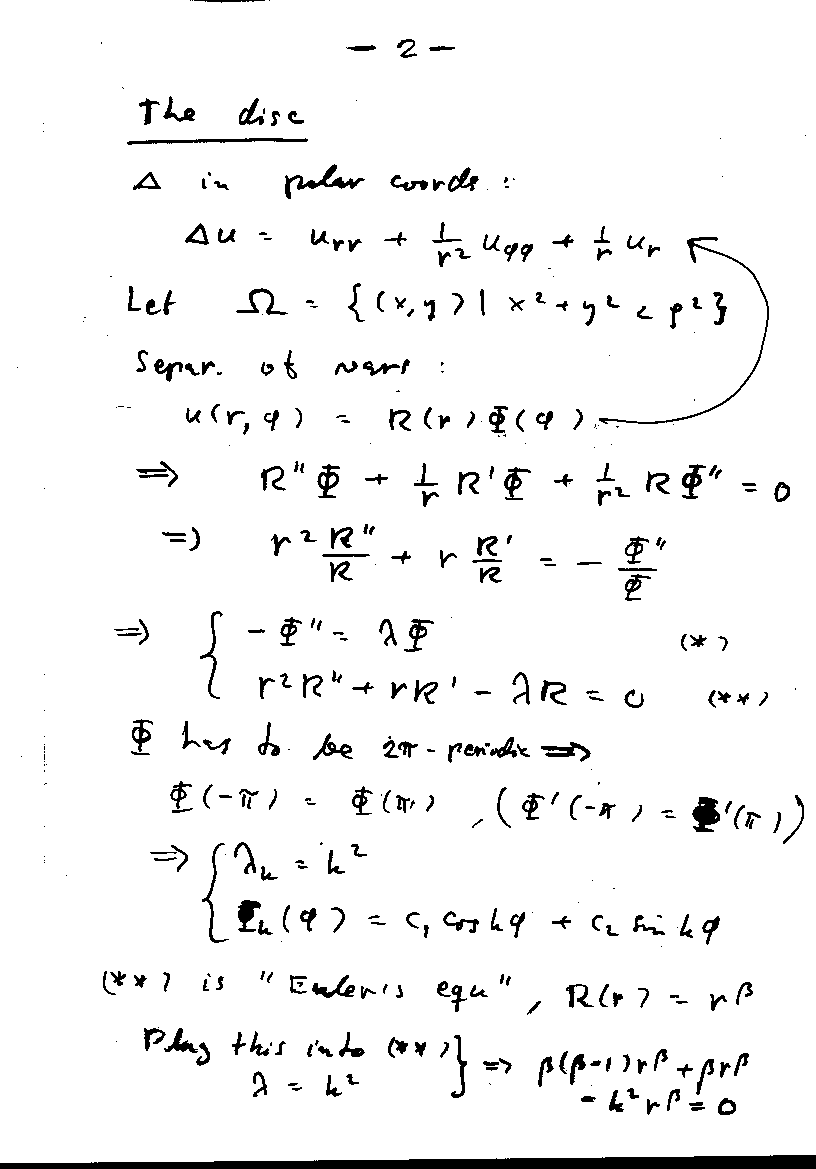 — 2 —
The disc
Δ in polar coords :
Δu = u_rr + 1/r² u_φφ + 1/r u_r
Let Ω = {(x,y) | x² + y² < ρ²}
Separ. of vars :
u(r, φ) = R(r) Φ(φ)
⇒ R''Φ + 1/r R'Φ + 1/r² RΦ'' = 0
⇒ r² R''/R + r R'/R = − Φ''/Φ
⇒ { −Φ'' = λΦ (*)
r²R'' + rR' − λR = 0 (**)
Φ has to be 2π-periodic ⇒
Φ(−π) = Φ(π), (Φ'(−π) = Φ'(π))
⇒ { λ_k = k²
Φ_k(φ) = c₁ cos kφ + c₂ sin kφ
(**) is "Euler's equ", R(r) = r^β
Plug this into (**) } ⇒ β(β−1)r^β + βr^β
λ = k² − k² r^β = 0